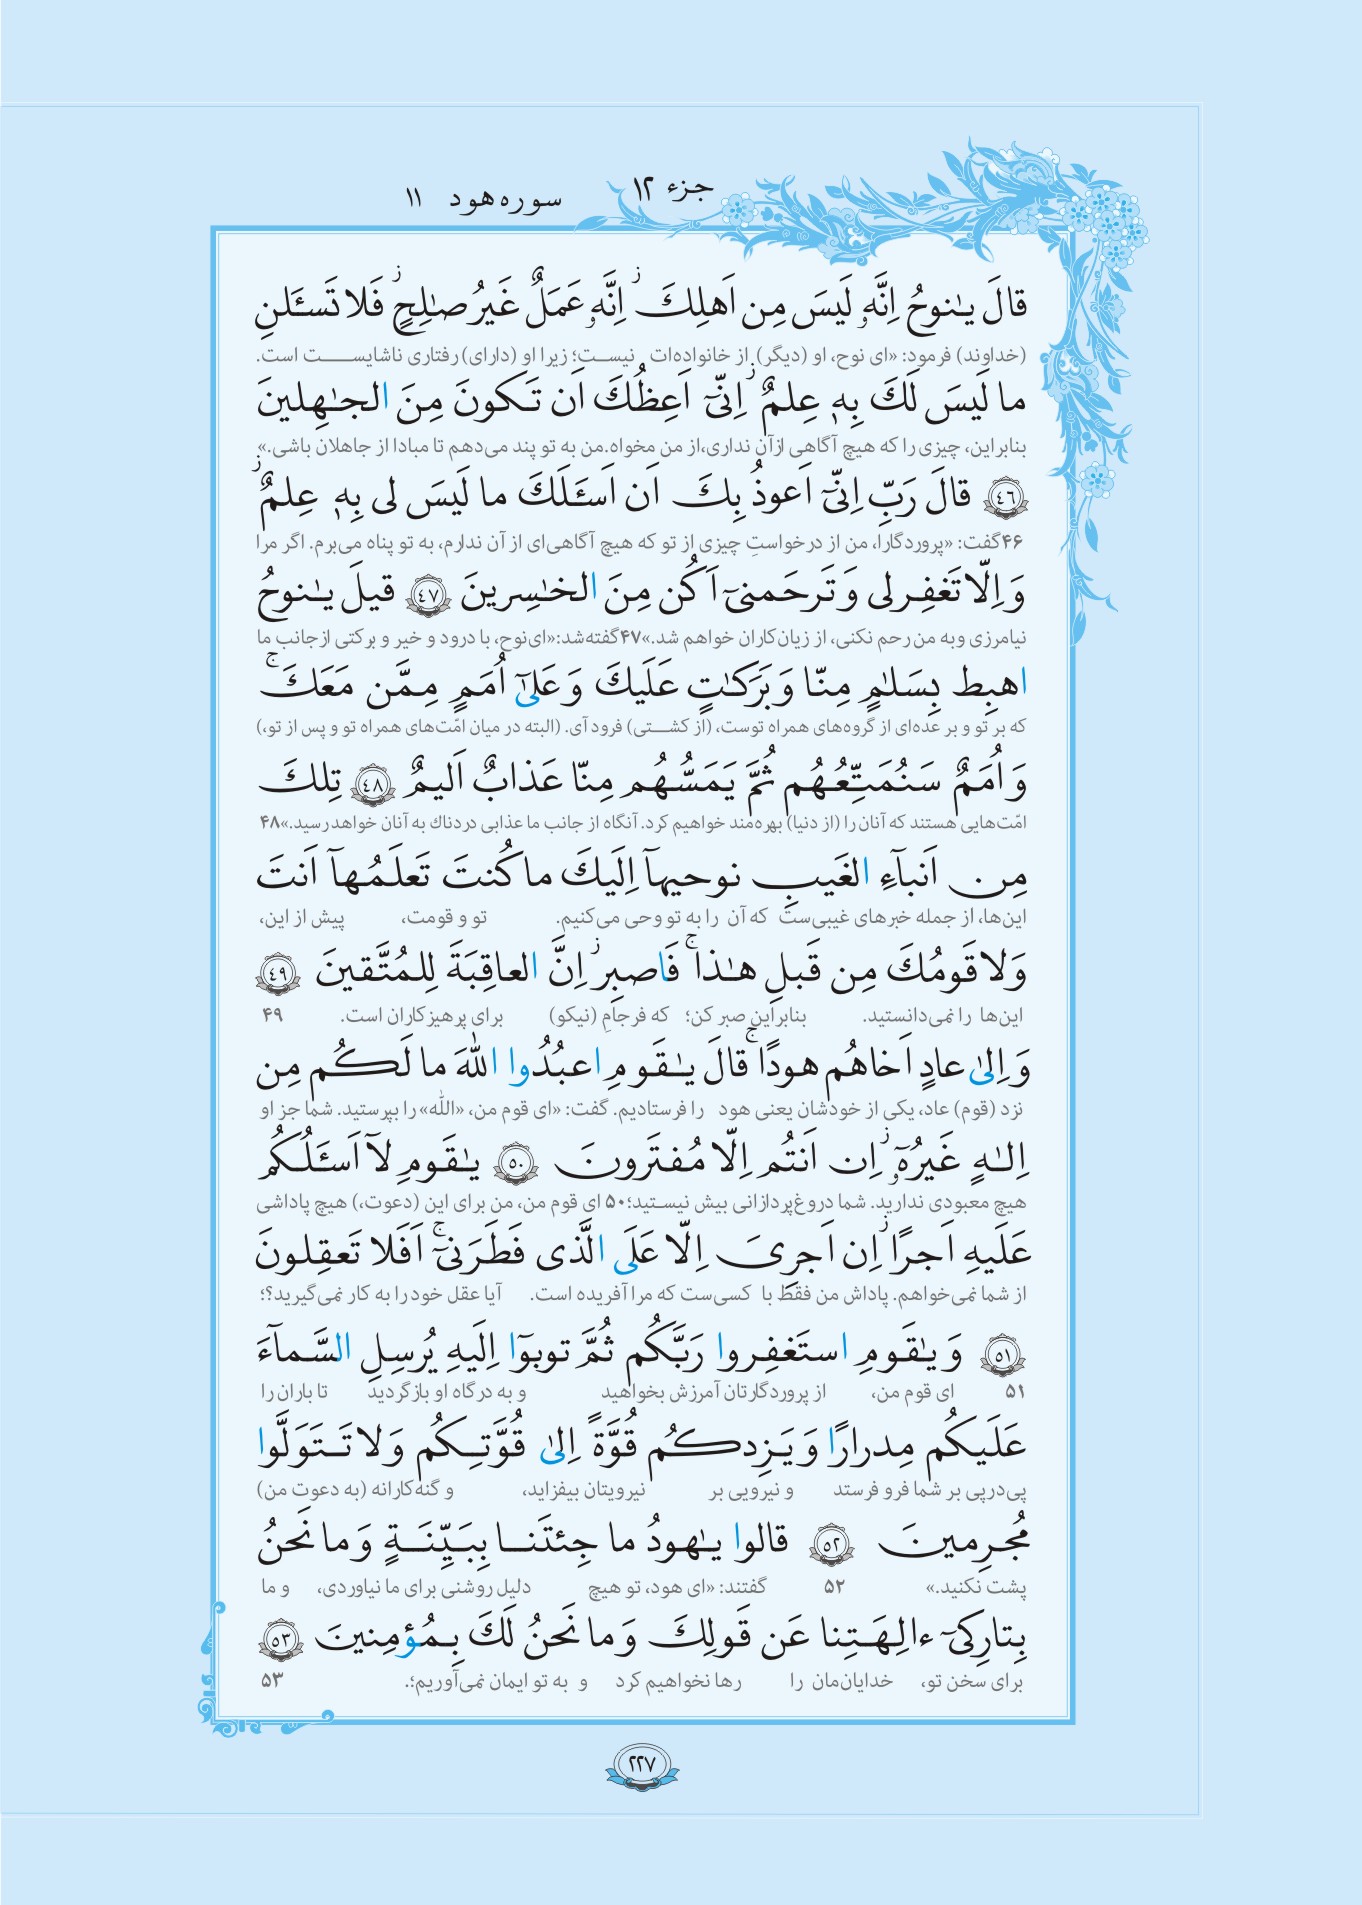 جزء ۱۲
سوره هود ۱۱
قالَ یـٰنوحُ اِنَّهٗ لَیسَ مِن اَهلِكَ ۖز اِنَّهٗ عَمَلٌ غَیرُ صـٰلِحٍ ۖز فَلا تَسـَٔلنِ
(خداوند) فرمود: «ای نوح، او (دیگر) از خانواده‌ات نیست؛ زیرا او (دارای) رفتاری ناشایست است.
ما لَیسَ لَكَ بِهٖ عِلمٌ ز اِنّیٓ اَعِظُكَ اَن تَكونَ مِنَ الجـٰهِلینَ
بنابراین، چیزی را که هیچ آگاهی ازآن نداری،از من مخواه.من به تو پند می‌دهم تا مبادا از جاهلان باشی.»
﴿٤٦﴾ قالَ رَبِّ اِنّیٓ اَعوذُ بِكَ اَن اَسـَٔلَكَ ما لَیسَ لی بِهٖ عِلمٌ ز
۴۶گفت: «پروردگارا، من از درخواستِ چیزی از تو که هیچ آگاهی‌ای از آن ندارم، به تو پناه می‌برم. اگر مرا
وَ اِلّا تَغفِرلی وَ تَرحَمنیٓ اَكُن مِنَ الخـٰسِرینَ ﴿٤٧﴾ قیلَ یـٰنوحُ
نیامرزی وبه من رحم نکنی، از زیان‌کاران خواهم شد.»۴۷گفته‌شد:«ای‌نوح، با درود و خیر و برکتی ازجانب ما
اهبِط بِسَلـٰمٍ مِنّا وَ بَرَكـٰتٍ عَلَیكَ وَ عَلیٰٓ اُمَمٍ مِمَّن مَعَكَ ۚ ج
که بر تو و بر عده‌ای از گروه‌های همراه توست، (از کشتی) فرود آی. (البته در میان امّت‌های همراه تو و پس از تو،)
وَ اُمَمٌ سَنُمَتِّعُهُم ثُمَّ یَمَسُّهُم مِنّا عَذابٌ اَلیمٌ ﴿٤٨﴾ تِلكَ
امّت‌هایی هستند که آنان را (از دنیا) بهره‌مند خواهیم کرد. آنگاه از جانب ما عذابی دردناك به آنان خواهد رسید.»۴۸
مِن اَنبآءِ الغَیبِ نوحیهآ اِلَیكَ ما كُنتَ تَعلَمُهآ اَنتَ
این‌ها، از جمله خبرهای غیبی‌ست که آن را به تو وحی می‌کنیم. تو و قومت، پیش از این،
وَلا قَومُكَ مِن قَبلِ هـٰذا ج فَاصبِر ز اِنَّ العاقِبَةَ لِلمُتَّقینَ ﴿٤٩﴾
این‌ها را نمی‌دانستید. بنابراین صبر کن؛ که فرجامِ (نیکو) برای پرهیزکاران است. ۴۹
وَ اِلیٰ عادٍ اَخاهُم هودًا ج قالَ یـٰقَومِ اعبُدُوا اللّٰهَ ما لَكُم مِن
نزد (قوم) عاد، یکی از خودشان یعنی هود را فرستادیم. گفت: «ای قوم من، «اللّٰه» را بپرستید. شما جز او
اِلـٰهٍ غَیرُهٗٓ ز اِن اَنتُم اِلّا مُفتَرونَ ﴿٥٠﴾ یـٰقَومِ لآ اَسـَٔلُكُم
هیچ معبودی ندارید. شما دروغ‌پردازانی بیش نیستید؛۵۰ ای قوم من، من برای این (دعوت،) هیچ پاداشی
عَلَیهِ اَجرًا ز اِن اَجرِیَ اِلّا عَلَی الَّذی فَطَرَنیٓ ج اَفَلا تَعقِلونَ
از شما نمی‌خواهم. پاداش من فقط با کسی‌ست که مرا آفریده است. آیا عقل خود را به کار نمی‌گیرید؟؛
﴿٥١﴾ وَ یـٰقَومِ استَغفِروا رَبَّكُم ثُمَّ توبوٓا اِلَیهِ یُرسِلِ السَّمآءَ
۵۱ ای قوم من، از پروردگارتان آمرزش بخواهید و به درگاه او بازگردید تا باران را
عَلَیكُم مِدرارًا وَ یَزِدكُم قُوَّةً اِلیٰ قُوَّتِكُم وَلا تَتَوَلَّوا
پی‌درپی بر شما فرو فرستد و نیرویی بر نیرویتان بیفزاید، و گنه‌کارانه (به دعوت من)
مُجرِمینَ ﴿٥٢﴾ قالوا یـٰهودُ ما جِئتَنا بِبَیِّنَةٍ وَ ما نَحنُ
پشت نکنید.» ۵۲ گفتند: «ای هود، تو هیچ دلیل روشنی برای ما نیاوردی، و ما
بِتارِكیٓ ءالِهَتِنا عَن قَولِكَ وَ ما نَحنُ لَكَ بِمُؤمِنینَ ﴿٥٣﴾
برای سخن تو، خدایان‌مان را رها نخواهیم کرد و به تو ایمان نمی‌آوریم؛. ۵۳
۲۲۷